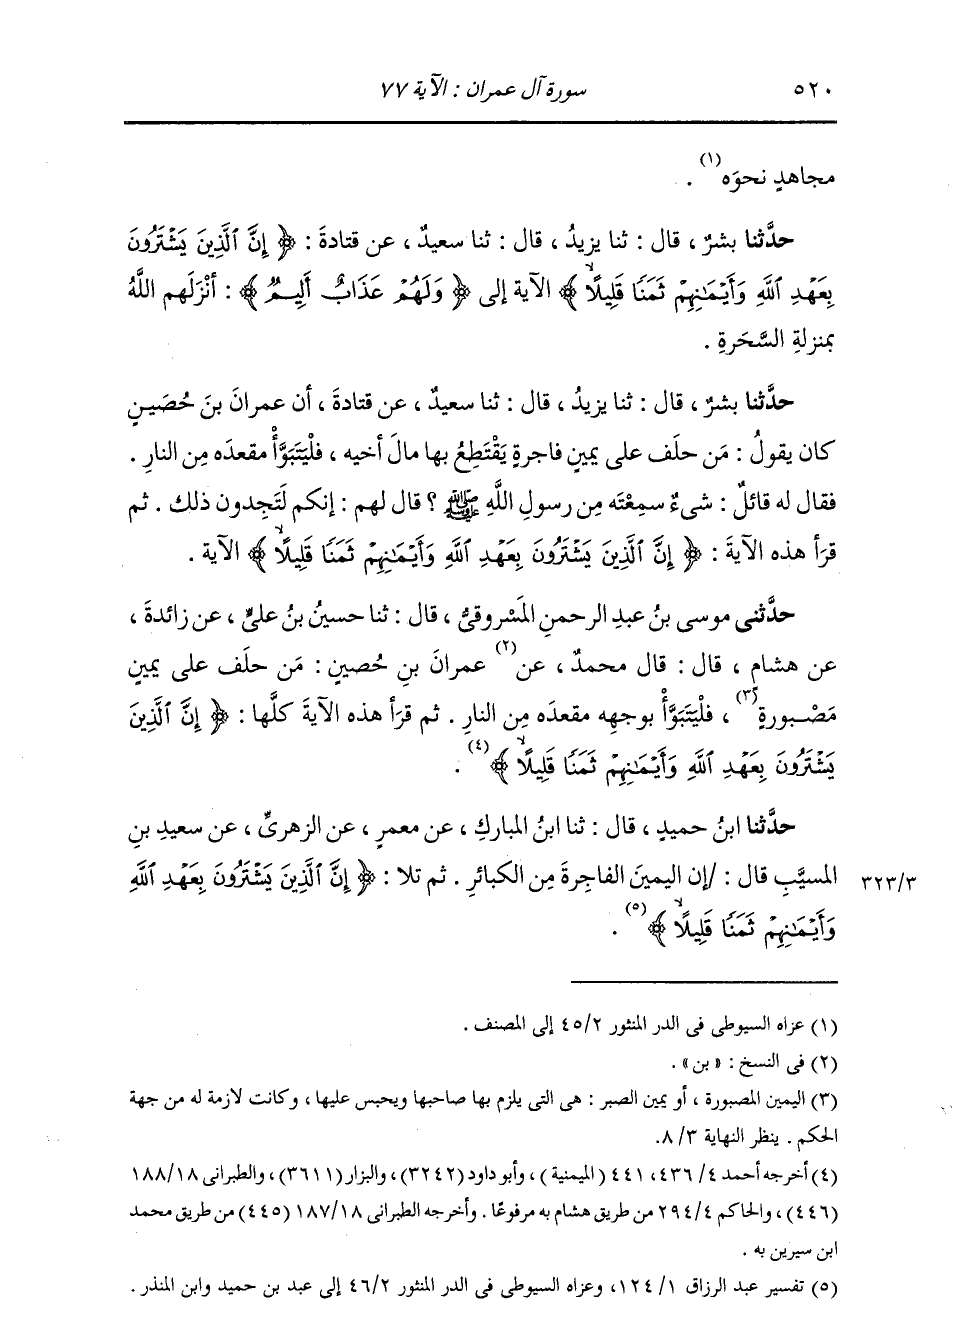 ٥٢٠ سورة آل عمران : الآية ٧٧
مجاهدٍ نحوَه(١) .
حدَّثنا بشرٌ ، قال : ثنا يزيدُ ، قال : ثنا سعيدٌ ، عن قتادةَ : ﴿ إِنَّ ٱلَّذِينَ يَشْتَرُونَ
بِعَهْدِ ٱللَّهِ وَأَيْمَٰنِهِمْ ثَمَنًا قَلِيلًا ﴾ الآية إلى ﴿ وَلَهُمْ عَذَابٌ أَلِيمٌ ﴾ : أنْزَلَهم اللَّهُ
بمنزلةِ السَّحَرةِ .
حدَّثنا بشرٌ ، قال : ثنا يزيدُ ، قال : ثنا سعيدٌ ، عن قتادةَ ، أن عمرانَ بنَ حُصَينٍ
كان يقولُ : مَن حلَف على يمينٍ فاجرةٍ يَقْتَطِعُ بها مالَ أخيه ، فلْيَتَبَوَّأْ مقعدَه مِن النارِ .
فقال له قائلٌ : شىءٌ سمِعْتَه مِن رسولِ اللَّهِ ﷺ ؟ قال لهم : إنكم لَتَجِدون ذلك . ثم
قرَأ هذه الآيةَ : ﴿ إِنَّ ٱلَّذِينَ يَشْتَرُونَ بِعَهْدِ ٱللَّهِ وَأَيْمَٰنِهِمْ ثَمَنًا قَلِيلًا ﴾ الآية .
حدَّثنى موسى بنُ عبدِ الرحمنِ المَسْروقىُّ ، قال : ثنا حسينُ بنُ علىٍّ ، عن زائدةَ ،
عن هشامٍ ، قال : قال محمدٌ ، عن(٢) عمرانَ بنِ حُصينٍ : مَن حلَف على يمينٍ
مَصْبورةٍ(٣) ، فلْيَتَبَوَّأْ بوجهِه مقعدَه مِن النارِ . ثم قرَأ هذه الآيةَ كلَّها : ﴿ إِنَّ ٱلَّذِينَ
يَشْتَرُونَ بِعَهْدِ ٱللَّهِ وَأَيْمَٰنِهِمْ ثَمَنًا قَلِيلًا ﴾(٤) .
حدَّثنا ابنُ حميدٍ ، قال : ثنا ابنُ المباركِ ، عن معمرٍ ، عن الزهرىِّ ، عن سعيدِ بنِ
المسيَّبِ قال : /إن اليمينَ الفاجِرةَ مِن الكبائرِ . ثم تلا : ﴿ إِنَّ ٱلَّذِينَ يَشْتَرُونَ بِعَهْدِ ٱللَّهِ ٣٢٣/٣
وَأَيْمَٰنِهِمْ ثَمَنًا قَلِيلًا ﴾(٥) .
(١) عزاه السيوطى فى الدر المنثور ٤٥/٢ إلى المصنف .
(٢) فى النسخ : « بن » .
(٣) اليمين المصبورة ، أو يمين الصبر : هى التى يلزم بها صاحبها ويحبس عليها ، وكانت لازمة له من جهة
الحكم . ينظر النهاية ٨/٣.
(٤) أخرجه أحمد ٤/ ٤٣٦، ٤٤١ ( الميمنية ) ، وأبو داود (٣٢٤٢) ، والبزار (٣٦١١) ، والطبرانى ١٨٨/١٨
(٤٤٦) ، والحاكم ٢٩٤/٤ من طريق هشام به مرفوعًا . وأخرجه الطبرانى ١٨٧/١٨ (٤٤٥) من طريق محمد
ابن سيرين به .
(٥) تفسير عبد الرزاق ١/ ١٢٤، وعزاه السيوطى فى الدر المنثور ٤٦/٢ إلى عبد بن حميد وابن المنذر .